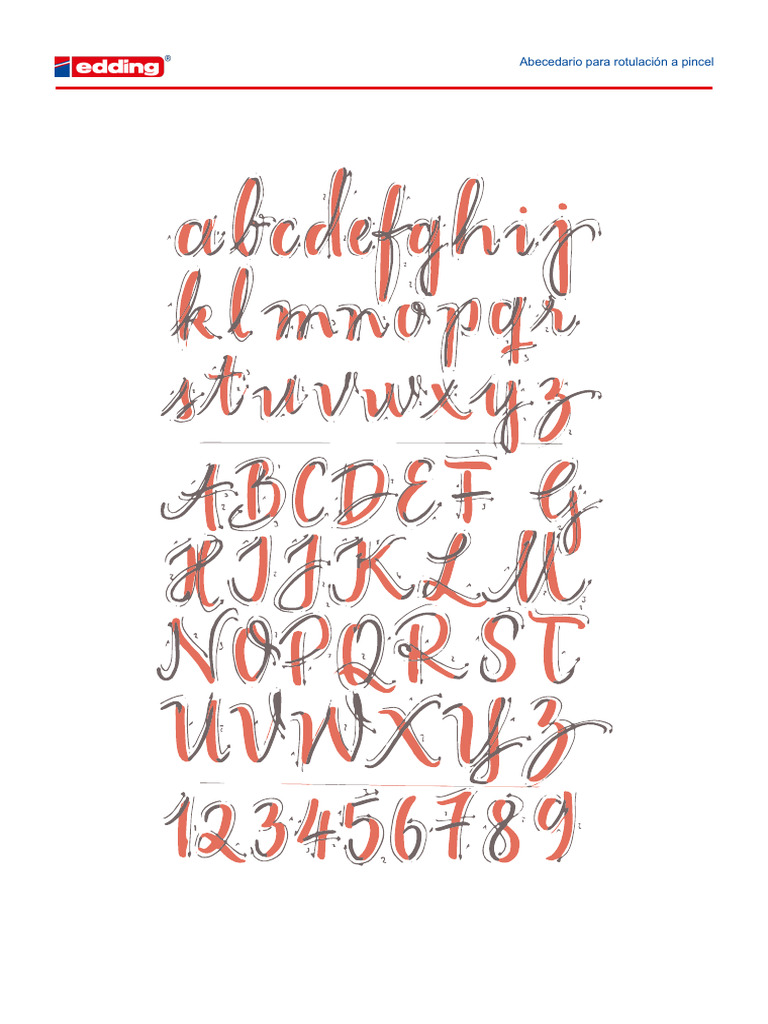 edding®
Abecedario para rotulación a pincel
abcdefghij
klmnopqr
stuvwxyz
ABCDEFG
HIJKLM
NOPQRST
UVWXYZ
123456789